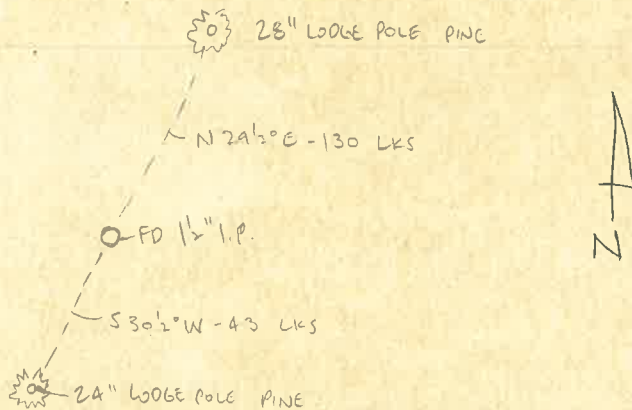 28" LODGE POLE PINE
N 29½° E - 130 LKS
FD 1½" I.P.
S 30½° W - 43 LKS
24" LODGE POLE PINE
N